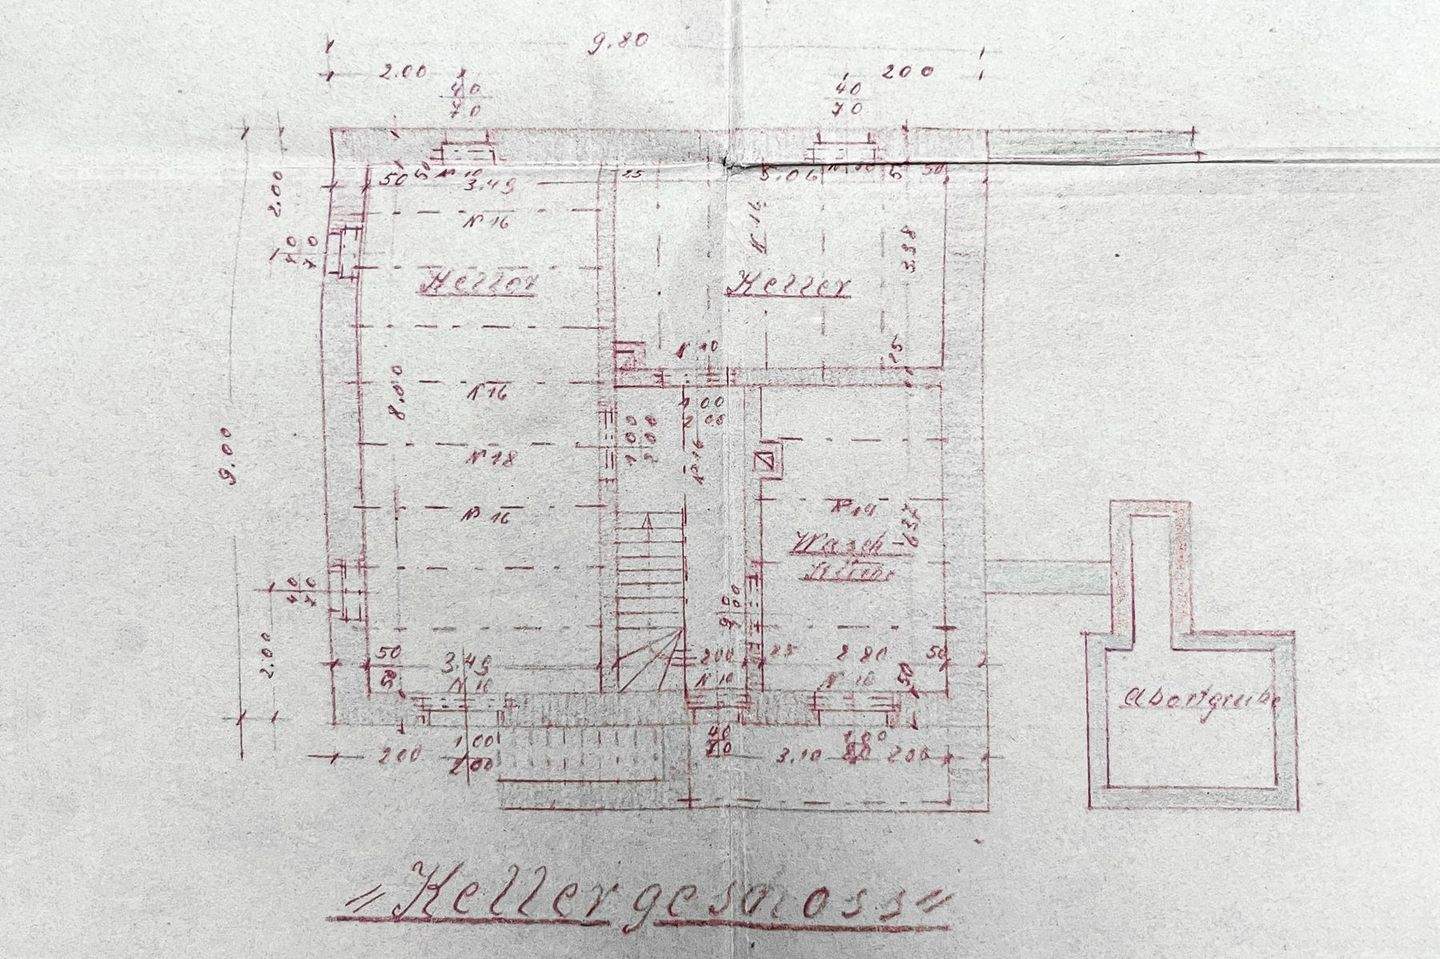 9.80
2.00
200
40
70
40
70
2.00
50
3.49
25
5.06
50
N 16
N 16
3.38
40
70
Keller
Keller
N 10
25
8.00
N 16
1.00
2.00
1.00
2.00
N 16
9.00
N 18
N 16
Wasch
40
70
90
200
2.00
50
3.49
200
25
2 80
50
N 10
N 10
N 10
50
Abortgrube
200
1.00
2.00
40
70
3.10
1.00
200
"Kellergeschoss"